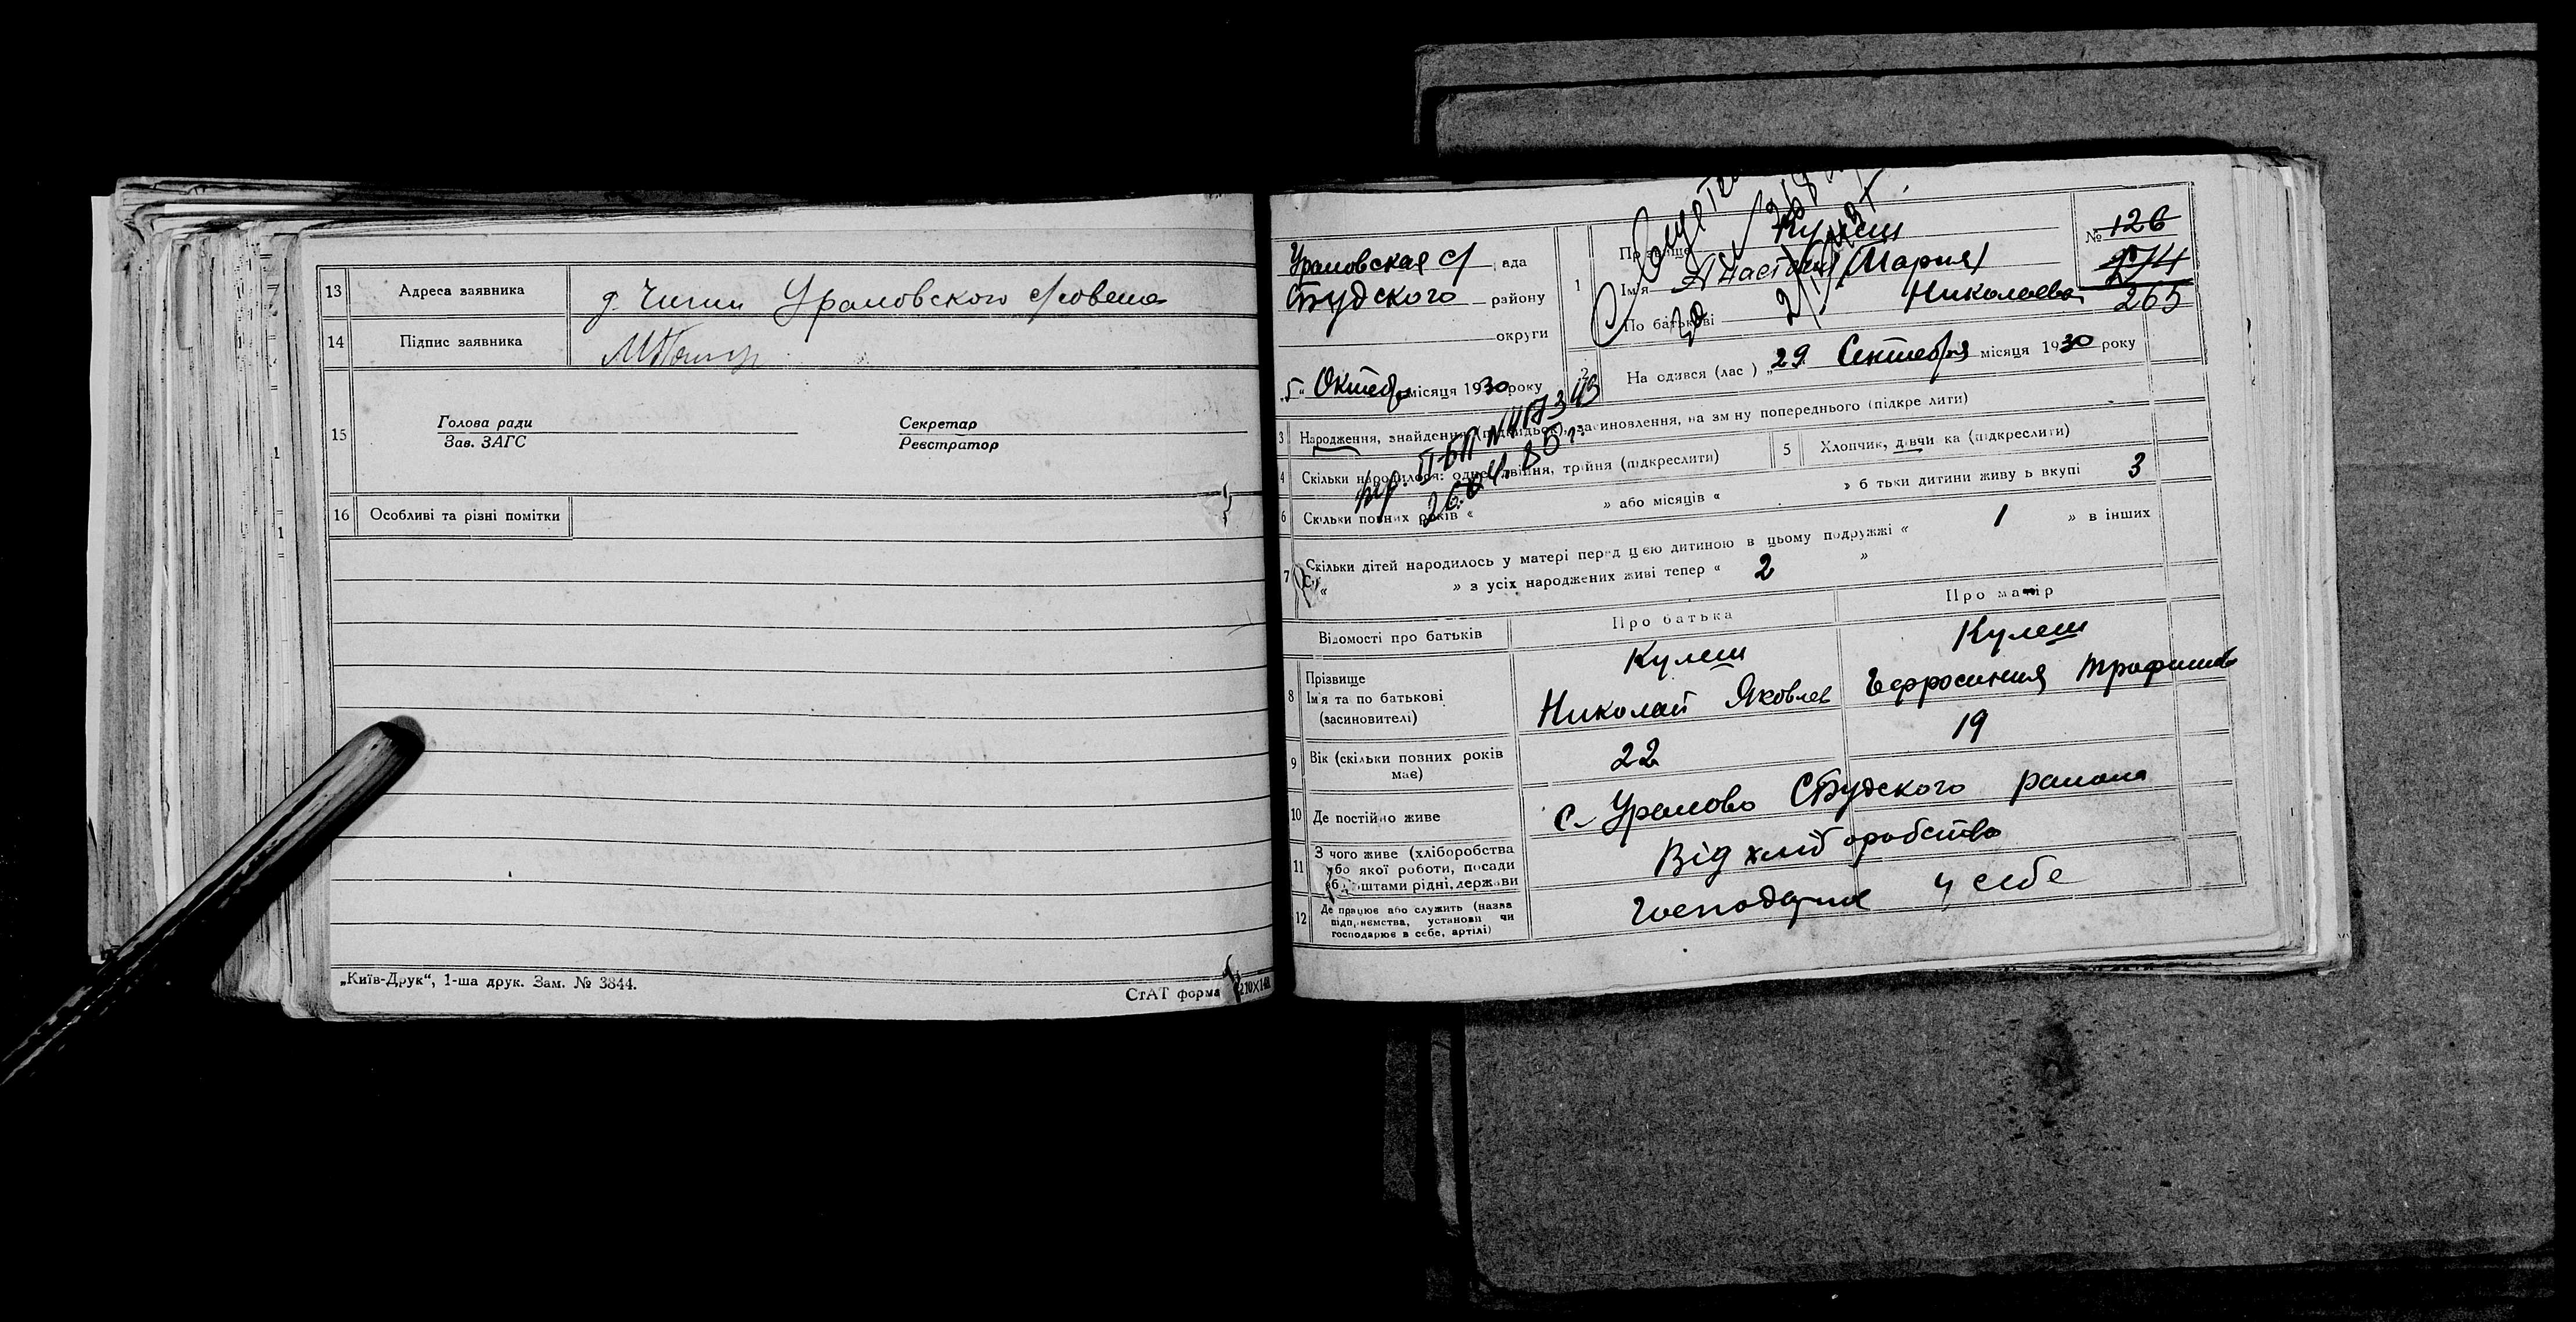 13 Адреса заявника
Урамовского с/совета
14 Підпис заявника
15
Голова ради
Зав. ЗАГС
Секретар
Реєстратор
16 Особливі та різні помітки
„Київ-Друк“, 1-ша друк. Зам. № 3844.
СтАТ форма
Урамовская с/ ада
району
округи
„5“ Октяб місяця 1930 року
1
Кулеш
Ім'я Анастасия (Мария)
По батькові Николаева
№ 126
274
265
2
На одився (лас ) „29 Сентебря місяця 1930 року
3 Народження, знайдення
засиновлення, на зм ну попереднього (підкре лити)
4 Скільки народилося: одно, двійня, трійня (підкреслити)
5 Хлопчик, дівчи ка (підкреслити)
6 Скільки повних років « » або місяців « » б тьки дитини живу ь вкупі 3
7 Скільки дітей народилось у матері перед цією дитиною в цьому подружжі « 1 » в інших
« » з усіх народжених живі тепер « 2 »
Відомості про батьків
Про батька
Про матір
8 Прізвище
Ім'я та по батькові
(засиновителі)
Кулеш
Николай Яковлев
Кулеш
Ефросиния Трофимов
9 Вік (скільки повних років
має)
22
19
10 Де постійно живе
с. Урамово СБудского района
11 З чого живе (хліборобства
або якої роботи, посади
штами рідні, держави
Від хліборобства
12 Де працює або служить (назва
підприємства, установи чи
господарює в себе, артілі)
Господарює у себе